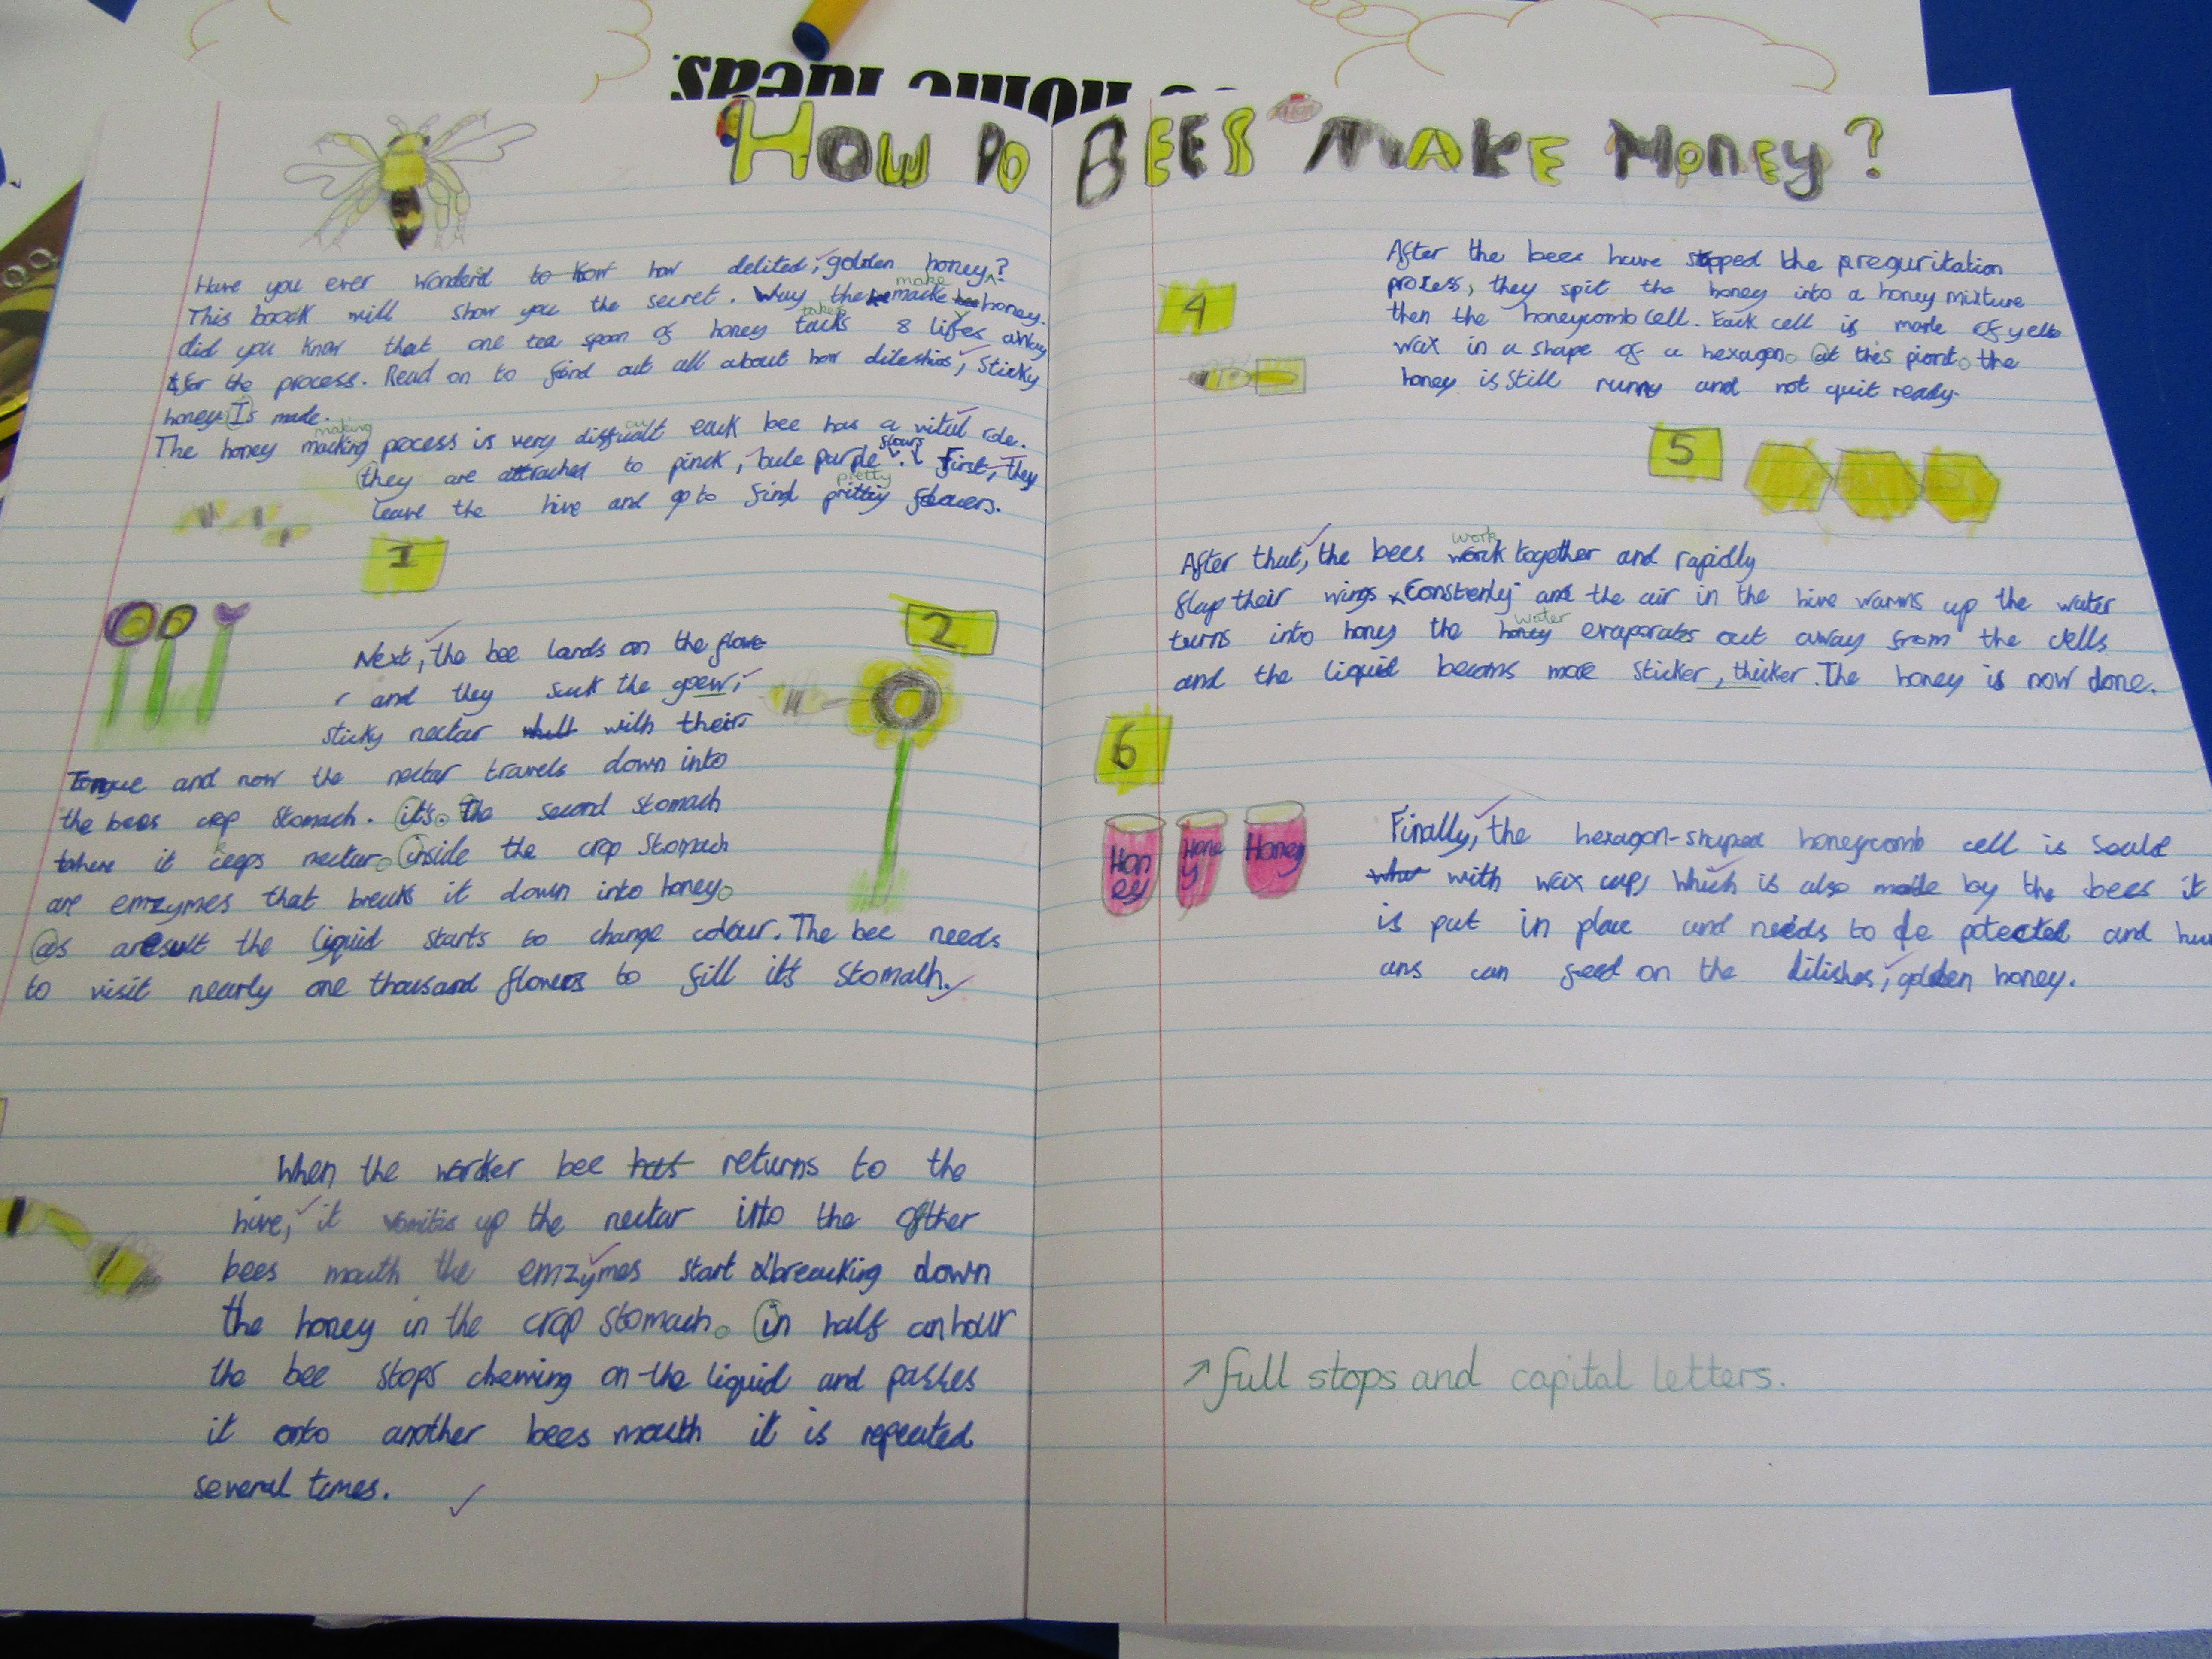 HOW DO BEES MAKE HONEY?
Have you ever wonderd to how how delited, golden honey?
This boock will show you the secret. Way the macke honey.
make
did you know that one tea spoon of honey tacks 8 lifes away
takes
for the process. Read on to find out all about how dileshios, sticky
honey Is made.
making
The honey macking pocess is very difficult each bee has a vital role.
they are attrached to pinck, bule purple flours. First, they
pretty
leave the hive and go to find prittiy flowers.
1
2
Next, the bee lands on the flowe
r and they suck the goew,
sticky nectar with their
Tongue and now the nectar travels down into
the bees crop stomach. it's. The second stomach
where it ceeps nectar. inside the crop stomach
are emzymes that breaks it down into honey.
as aresult the liquid starts to change colour. The bee needs
to visit nearly one thousand flowers to fill it's stomach.
When the worcker bee hat returns to the
hive, it vomitis up the nectar into the other
bees mouth the emzymes start breacking down
the honey in the crop stomach. in half an hour
the bee stops chewing on the liquid and passes
it onto another bees mouth it is repeated
several times.
4
After the bees have stopped the preguritation
process, they spit the honey into a honey mixture
then the honeycomb cell. Each cell is made of yello
wax in a shape of a hexagon. at this piont. the
honey is still runny and not quit ready.
5
work
After that, the bees worck together and rapidly
flap their wings constenly and the air in the hive warms up the water
water
turns into hony the honey evaporates out away from the cells
and the liquid becoms more sticker, thicker. The honey is now done.
6
Hon
ey
Hone
y
Honey
Finally, the hexagon-shaped honeycomb cell is seald
with wax cap, which is also made by the bees it
is put in place and needs to be potected and hum
ans can feed on the dilishes, golden honey.
↗ full stops and capital letters.